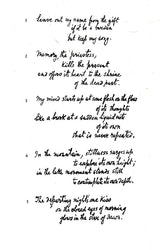 1 Leave out my name from the gift
if it be a burden
but keep my song.
2 Memory, the priestess,
kills the present
and offers its heart to the shrine
of the dead past.
3 My mind starts up at some flash on the flow
of its thoughts
like a brook at a sudden liquid note
of its own
that is never repeated.
4 In the mountain, stillness surges up
to explore its own height;
in the lake movement stands still
to contemplate its own depth.
5 The departing night's one kiss
on the closed eyes of morning
glows in the star of dawn.